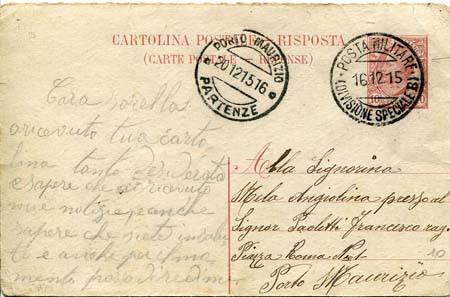 CARTOLINA POSTALE RISPOSTA
(CARTE POSTALE - RÉPONSE)
PORTO MAURIZIO
20.12.15 16
PARTENZE
POSTA MILITARE
16.12.15
(DIVISIONE SPECIALE B)
Cara sorella
o ricevuto tua carto
lina tanto desiderata
e sapere che ai ricevuto
mie notizie e anche
sapere che siete in salu
te e anche per il mo
mento posso dire di me
Alla Signorina
Mela Angiolina presso al
Signor Paoletti Francesco rag.
Piazza Roma
Porto Maurizio
10